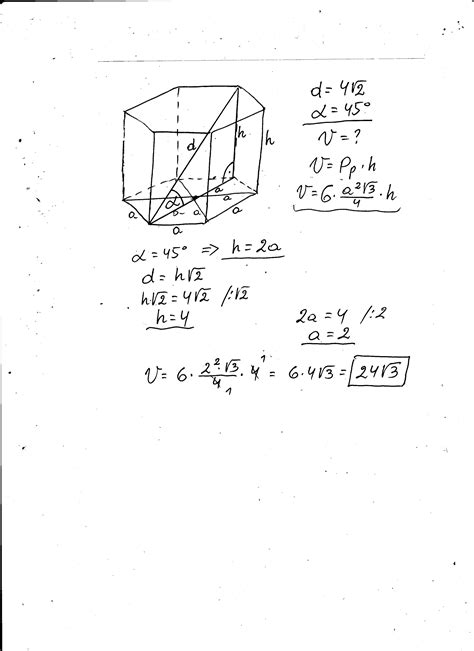 d = 4√2
α = 45°
V = ?
V = Pp · h
V = 6 · a²√3/4 · h
d
h
h
α
a
a
a
a
a
α = 45° ⇒ h = 2a
d = h√2
h√2 = 4√2 /:√2
h = 4
2a = 4 /:2
a = 2
V = 6 · 2²·√3/4 · 4 = 6 · 4√3 = 24√3
1
1